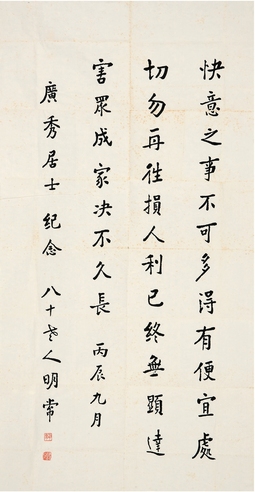 快意之事不可多得有便宜處
切勿再徃損人利己終無顯達
害眾成家决不久長 丙辰九月
廣秀居士 紀念 八十老人明常